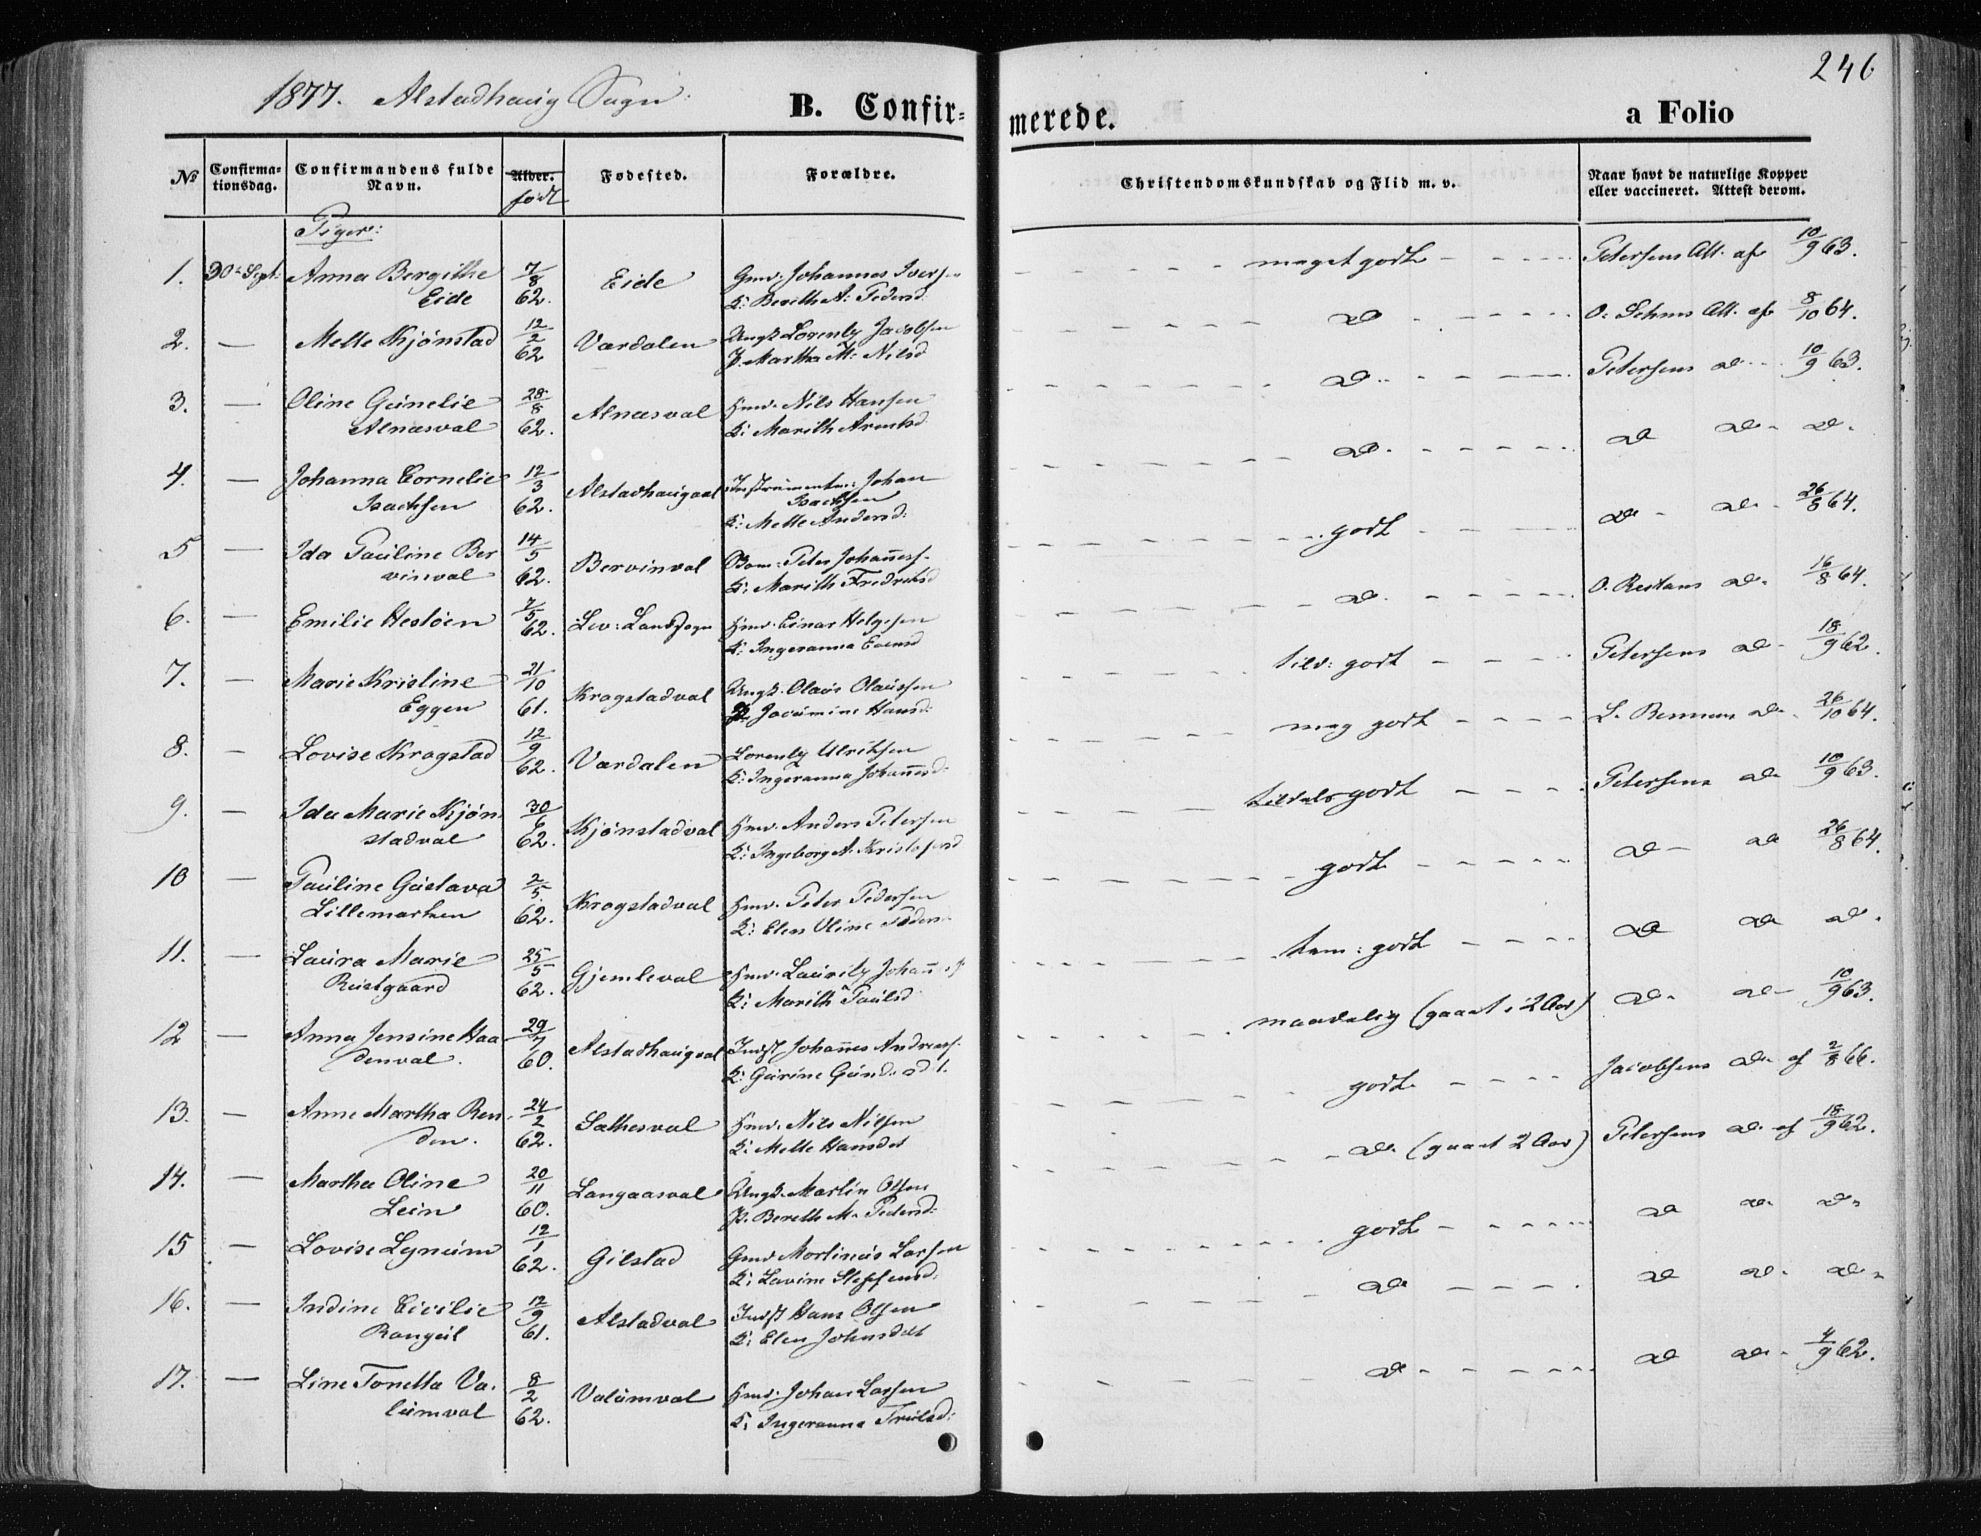 246
1877. Alstadhaug Sogn.
B. Confir-
merede.
a Folio
No
Confirma-
tionsdag.
Confirmandens fulde
Navn.
Alder.
født
Fødested.
Forældre.
Christendomskundskab og Flid m. v.
Naar havt de naturlige Kopper
eller vaccineret. Attest derom.
Piger:
1. 30te Sept. Anna Bergithe Eide 7/8 62. Eide Gmd. Johannes Iversen K: Berith A: Pedersd. meget godt Petersens Att. af 10/9 63.
2. — Mette Kjønstad 12/2 62 Værdalen Ungk. Lorentz Jacobsen P. Martha M: Nilsd. d O. Sehms Att. af 8/10 64.
3. — Oline Gunelie Alnæsval 28/8 62. Alnæsval Hmd. Nils Hansen K: Marith Arntsd. d Petersens d 10/9 63.
4. — Johanna Cornelie Isachsen 12/3 62. Alstadhaugval Instrumentm: Johan Isachsen K: Mette Andersd: d. d d d
5 — Ida Pauline Bervinval 14/5 62. Bervinval Bom: Peter Johanness. K: Marith Fredriksd godt d d 26/8 64.
6. — Emilie Hesløen 7/5 62. Lev: Landsogn Hmd. Einar Helgesen K: Ingeranna Evensd d. O. Restans d. 16/8 64.
7. — Marie Kristine Eggen 21/10 61. Kragstadval Ungk. Olaus Olaussen P. Jocumine Hansd: tild: godt Petersens d 18/9 62.
8. — Lovise Kragstad 12/9 62. Værdalen Lorentz Ulriksen K: Ingeranna Johannesd: meg godt L. Bennens d. 26/10 64.
9. — Ida Marie Kjønstadval 30/6 62. Kjønstadval Hmd. Anders Petersen K: Ingeborg A. Kristofersd tildels godt Petersens d 10/9 63.
10 — Pauline Gustava Lillemarken 2/5 62. Kragstadval Hmd. Peter Pedersen K: Elen Oline Peders godt d d 26/8 64.
11. — Laura Marie Rustgaard 25/5 62. Gjemleval Hmd. Lauritz Johanness K: Marith Paulsd tem: godt d d d.
12 — Anna Jensine Haadenval. 29/7 60. Alstadhaugval Indst Johannes Andreass. K: Gurine Gunde sd t. maadelig (gaaet i 2 Aar) d. d 10/9 63.
13. — Anne Martha Renden. 24/2 62. Sathesval Hmd. Nils Nilsen K: Mette Hansdat godt. Jacobsens d. af 2/8 66.
14. — Martha Oline Lein 20/11 60. Langaasval Ungk. Martin Olsen P. Bereth M. Pedersd: d. (gaaet 2 Aar) Petersens d. af 18/9 62.
15 — Lovise Lynum 12/1 62. Gilstad Gmd Mortinus Larsen K: Lavine Steffensd: godt d d d
16. — Indine Cicilie Rangul 12/9 61. Alstadval Indst Hans Olsen K: Elen Johnsdat d d d. d
17. — Line Tonetta Valumval 8/2 62. Valumval Hmd. Johan Larsen K: Ingeranna Trulsd: d d d. 4/9 62.